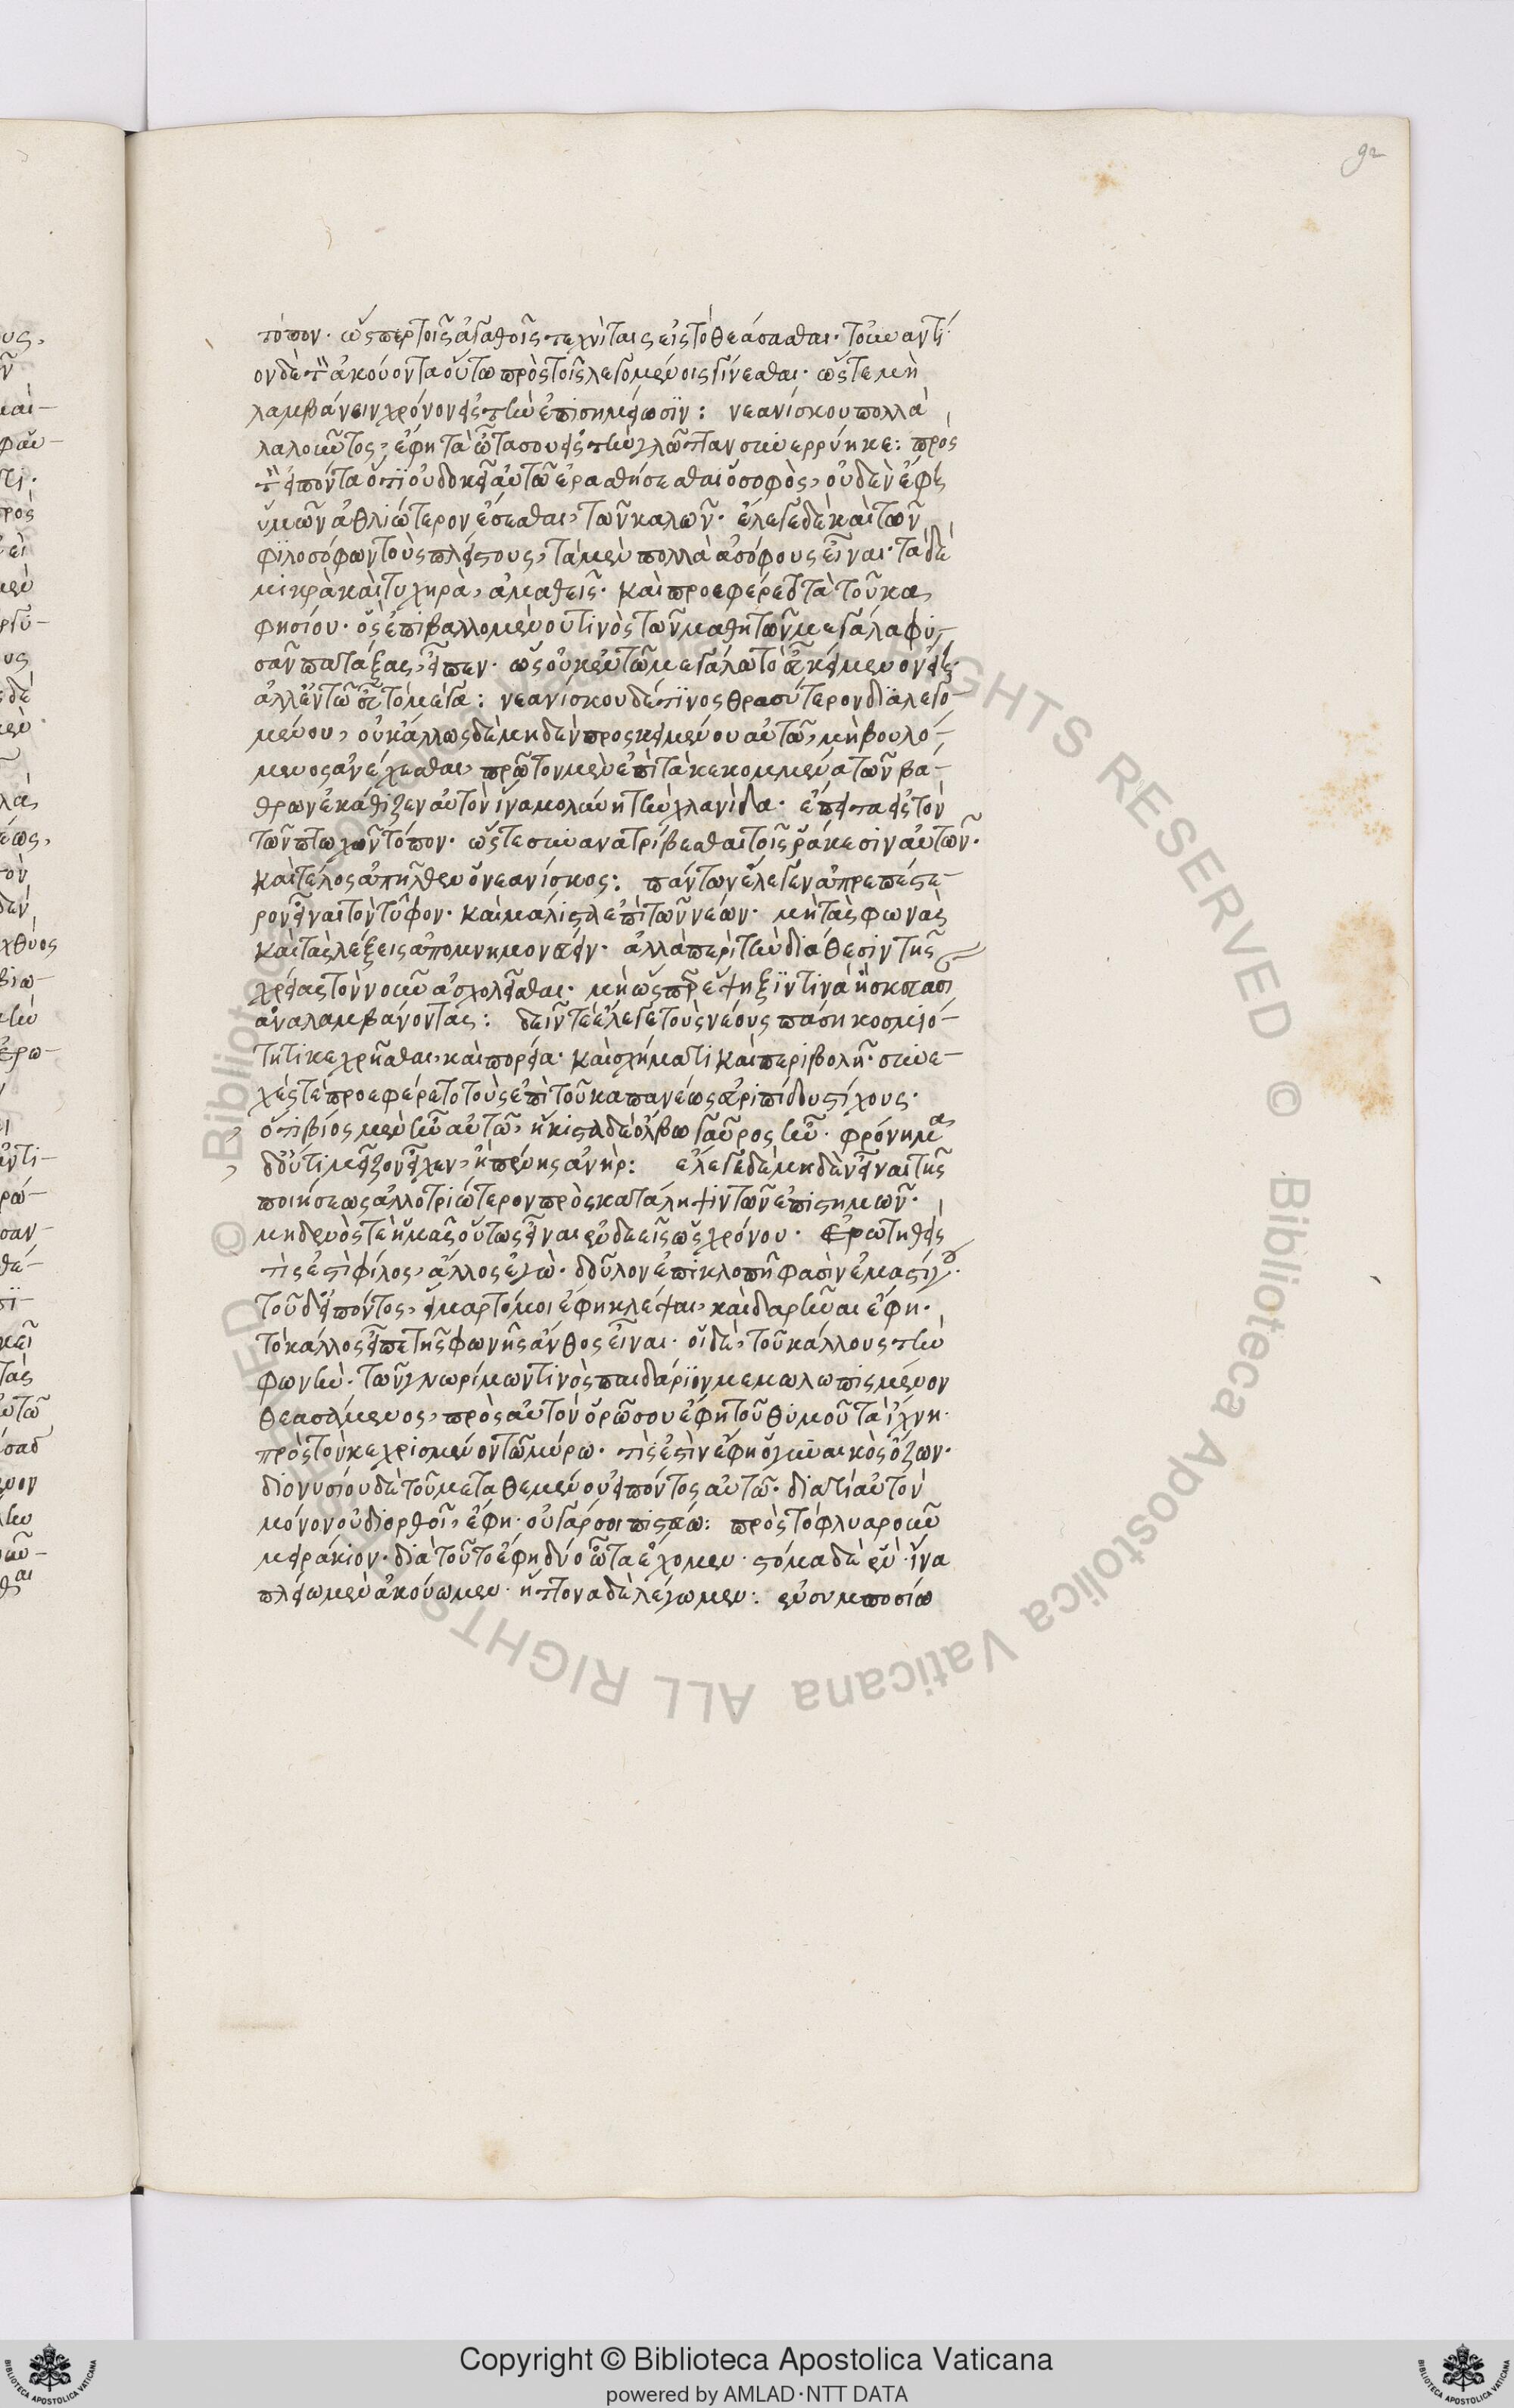 92
τόπον· ὥσπερ τοῖς ἀγαθοῖς τεχνίταις εἰς τὸ θεάσασθαι· τοὐναντί
ον δὲ τὸν ἀκούοντα οὕτω πρὸς τοῖς λεγομένοις γίνεσθαι· ὥστε μὴ
λαμβάνειν χρόνον εἰς τὴν ἐπισημείωσιν: νεανίσκου πολλὰ
λαλοῦντος, ἔφη τὰ ὦτά σου εἰς τὴν γλῶτταν συνερρύηκε: πρὸς
τὸν εἰπόντα ὅτι οὐ δοκεῖ αὐτῶ ἐρασθήσεσθαι ὁ σοφὸς, οὐδὲν ἔφη
ὑμῶν ἀθλιώτερον ἔσεσθαι, τῶν καλῶν· ἔλεγε δὲ καὶ τῶν
φιλοσόφων τοὺς πλείστους, τὰ μὲν πολλὰ ἀσόφους εἶναι· τὰ δὲ
μικρὰ καὶ τυχηρὰ, ἀμαθεῖς· καὶ προεφέρετο τὰ τοῦ κα
φησίου· ὃς ἐπιβαλλομένου τινὸς τῶν μαθητῶν μεγάλα φυ
σᾶν πατάξας, εἶπεν· ὡς οὐκ ἐν τῶ μεγάλω τὸ εὖ κείμενον εἴη·
ἀλλ' ἐν τῶ εὖ τὸ μέγα: νεανίσκου δέ τινος θρασύτερον διαλεγο
μένου, οὐκ ἄλλως δὲ μηδὲν προσκειμένου αὐτῶ, μὴ βουλό
μενος ἀνέχεσθαι, πρῶτον μὲν ἐπὶ τὰ κεκομμένα τῶν βά
θρων ἐκάθιζεν αὐτὸν ἵνα μολύνη τὴν χλανίδα· ἔπειτα εἰς τὸν
τῶν πτωχῶν τόπον· ὥστε συνανατρίβεσθαι τοῖς ῥάκεσιν αὐτῶν·
καὶ τέλος ἀπῆλθεν ὁ νεανίσκος: πάντων ἔλεγεν ἀπρεπέστε
ρον εἶναι τὸν τῦφον· καὶ μάλιστα ἐπὶ τῶν νέων· μὴ τὰς φωνὰς
καὶ τὰς λέξεις ἀπομνημονεύειν· ἀλλὰ περὶ τὴν διάθεσιν τῆς
χρείας τὸν νοῦν ἀσχολεῖσθαι· μὴ ὥσπερ ἕψησίν τινα ἢ σκευασί
ἀναλαμβάνοντας: δεῖν τε ἔλεγε τοὺς νέους πάση κοσμιό
τητι κεχρῆσθαι, καὶ πορεία· καὶ σχήματι καὶ περιβολῆ· συνε
χές τε προεφέρετο τοὺς ἐπὶ τοῦ καπανέως εὐριπίδου στίχους·
ὅτι βίος μὲν ἦν αὐτῶ, ἥκιστα δὲ ὄλβω γαῦρος ἦν· φρόνημα
δὲ οὔτι μεῖζον εἶχεν, ἢ πένης ἀνὴρ: ἔλεγε δὲ μηδὲν εἶναι τῆς
ποιήσεως ἀλλοτριώτερον πρὸς κατάληψιν τῶν ἐπιστημῶν·
μηδενός τε ἡμᾶς οὕτως εἶναι ἐνδεεῖς ὡς χρόνου· ἐρωτηθεὶς
τίς ἐστι φίλος, ἄλλος ἐγώ· δοῦλον ἐπὶ κλοπῆ φασὶν ἐμαστίγου·
τοῦ δ' εἰπόντος, εἵμαρτό μοι ἔφη κλέψαι, καὶ δαρῆναι ἔφη·
τὸ κάλλος εἶπε τῆς φωνῆς ἄνθος εἶναι· οἱ δὲ, τοῦ κάλλους τὴν
φωνήν· τῶν γνωρίμων τινὸς παιδάριον μεμωλωπισμένον
θεασάμενος, πρὸς αὐτὸν ὁρῶ σου ἔφη τοῦ θυμοῦ τὰ ἴχνη·
πρὸς τὸν κεχρισμένον τῶ μύρω· τίς ἐστὶν ἔφη ὁ γυναικὸς ὄζων·
διονυσίου δὲ τοῦ μεταθεμένου εἰπόντος αὐτῶ· διατί αὐτὸν
μόνον οὐ διορθοῖ, ἔφη· οὐ γάρ σοι πιστεύω: πρὸς τὸ φλυαροῦν
μειράκιον· διὰ τοῦτο ἔφη δύο ὦτα ἔχομεν· στόμα δὲ ἓν· ἵνα
πλείω μὲν ἀκούωμεν· ἥττονα δὲ λέγωμεν: ἐν συμποσίω
Copyright © Biblioteca Apostolica Vaticana
powered by AMLAD·NTT DATA